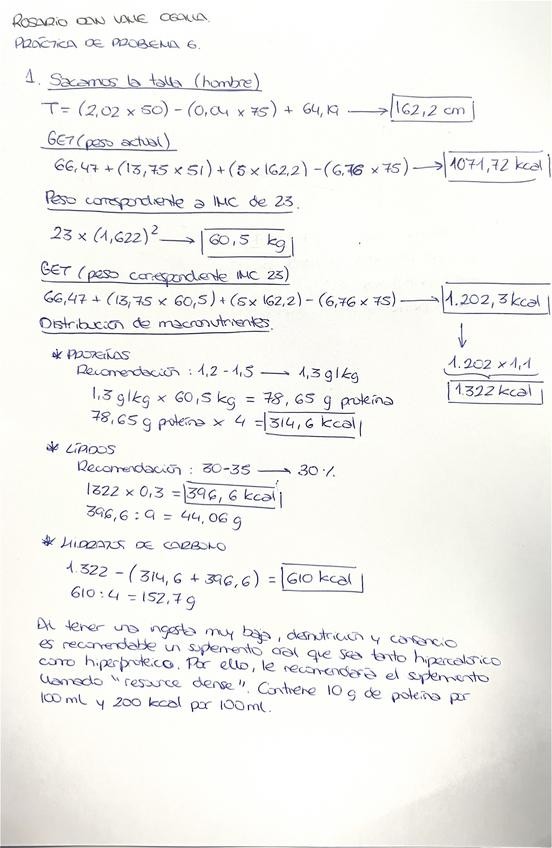 ROSARIO DAN VALLE
PRÁCTICA DE PROBLEMA 6.
1. Sacamos la talla (hombre)
T = (2,02 x 50) - (0,04 x 75) + 64,19 → 162,2 cm
GET (peso actual)
66,47 + (13,75 x 51) + (5 x 162,2) - (6,76 x 75) → 1071,72 kcal
Peso correspondiente a IMC de 23.
23 x (1,622)² → 60,5 kg
GET (peso correspondiente IMC 23)
66,47 + (13,75 x 60,5) + (5 x 162,2) - (6,76 x 75) → 1.202,3 kcal
↓
1.202 x 1,1
1.322 kcal
Distribución de macronutrientes.
* PROTEÍNAS
Recomendación : 1,2 - 1,5 → 1,3 g/kg
1,3 g/kg x 60,5 kg = 78,65 g proteína
78,65 g proteína x 4 = 314,6 kcal
* LÍPIDOS
Recomendación : 30-35 → 30 %.
1322 x 0,3 = 396,6 kcal
396,6 : 9 = 44,06 g
* HIDRATOS DE CARBONO
1.322 - (314,6 + 396,6) = 610 kcal
610 : 4 = 152,7 g
Al tener una ingesta muy baja, desnutrición y cansancio
es recomendable un suplemento oral que sea tanto hipercalórico
como hiperproteico. Por ello, le recomendaría el suplemento
llamado "resource dense". Contiene 10 g de proteína por
100 ml y 200 kcal por 100 ml.